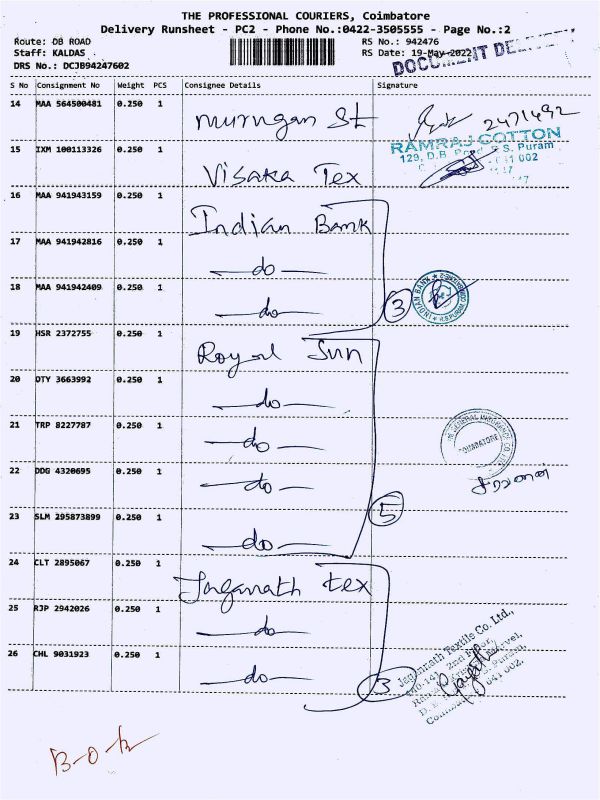 THE PROFESSIONAL COURIERS, Coimbatore
Delivery Runsheet - PC2 - Phone No.:0422-3505555 - Page No.:2
Route: DB ROAD
RS No.: 942476
Staff: KALDAS
RS Date: 19-May-2022
DRS No.: DCJB94247602
DOCUMENT
S No Consignment No Weight PCS Consignee Details Signature
14 MAA 564500481 0.250 1 Murugan St 2471492
RAMRAJ COTTON
129, D.B. Road, R.S. Puram
641 002
15 IXM 100113326 0.250 1 Visaka Tex
16 MAA 941943159 0.250 1 Indian Bank
17 MAA 941942816 0.250 1 do
18 MAA 941942409 0.250 1 do 3
INDIAN BANK
19 HSR 2372755 0.250 1 Royal Sun
20 DTY 3663992 0.250 1 do
21 TRP 8227787 0.250 1 do
GENERAL INSURANCE CO. LTD.
COIMBATORE
22 DDG 4320695 0.250 1 do
சரவணன்
23 SLM 295873899 0.250 1 do 5
24 CLT 2895067 0.250 1 Jaganath tex
25 RJP 2942026 0.250 1 do
26 CHL 9031923 0.250 1 do 3
Jagannath Textile Co. Ltd.,
2nd Floor,
641 002.
B-O-K